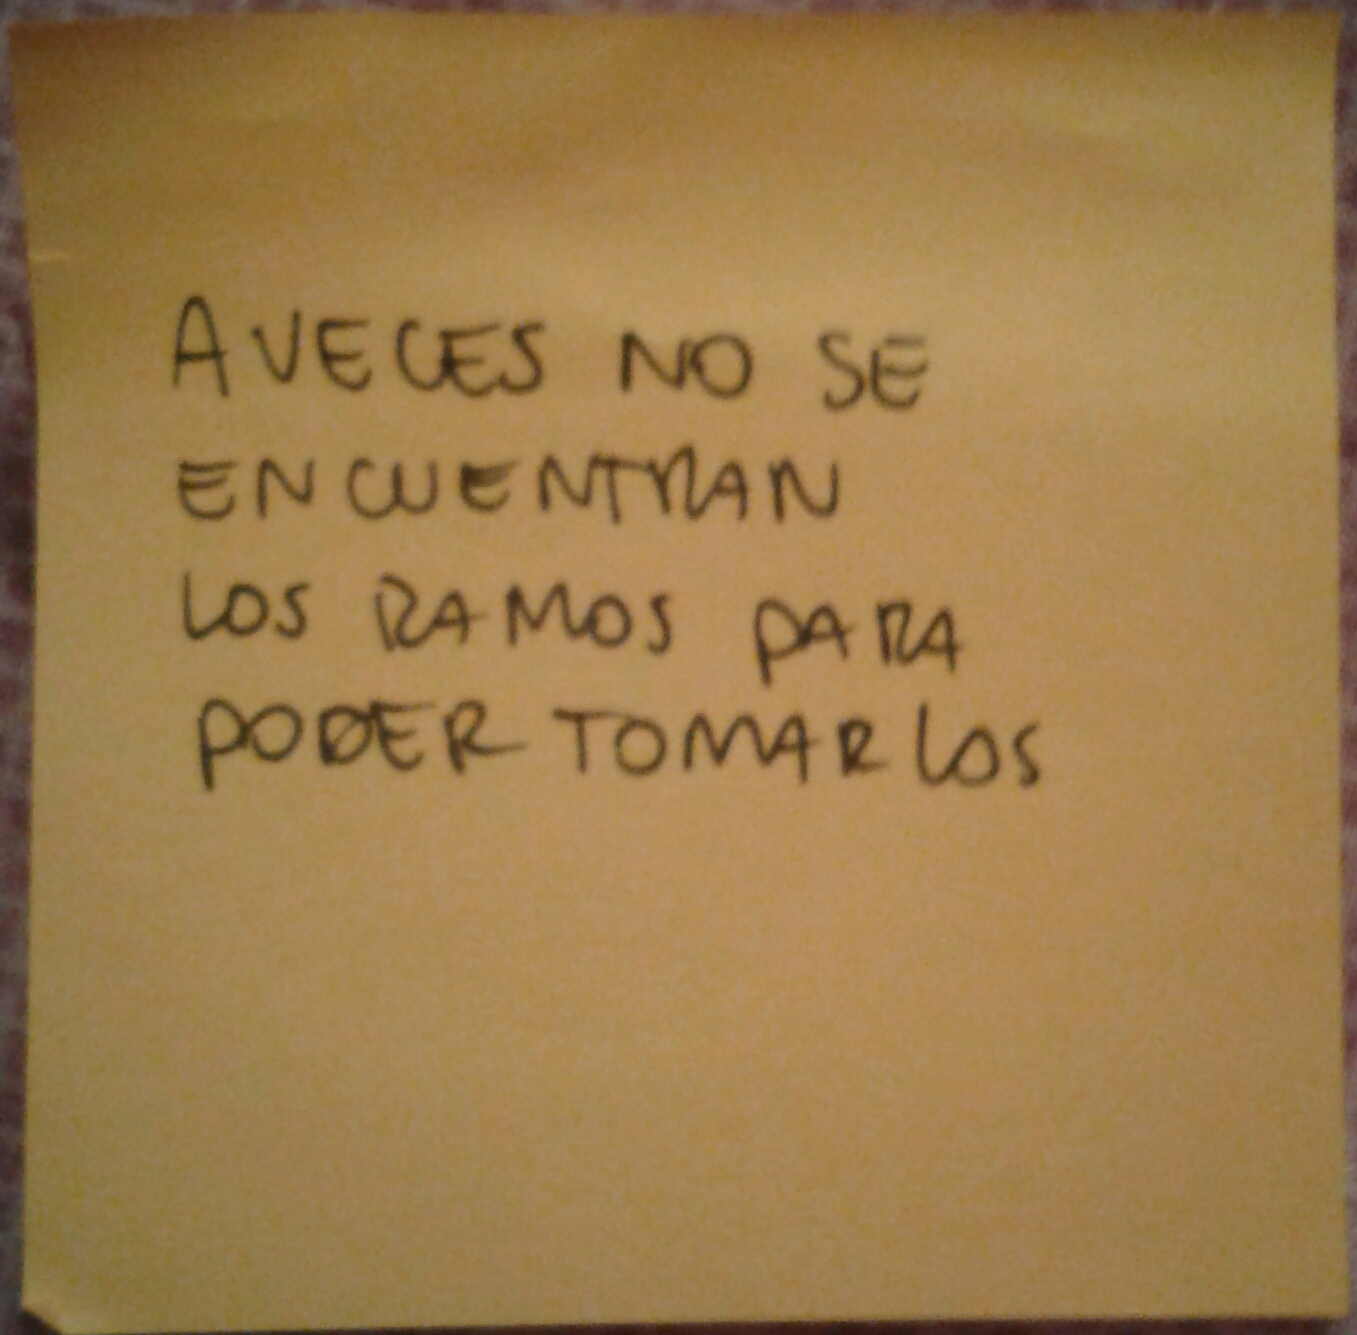 A VECES NO SE
ENCUENTRAN
LOS RAMOS PARA
PODER TOMARLOS